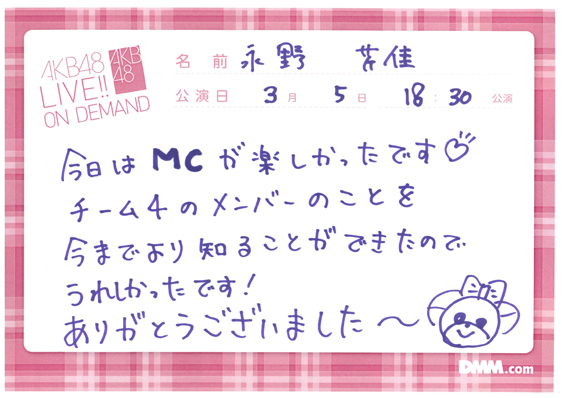 AKB48
LIVE!!
ON DEMAND
AKB
48
名前 永野 芹佳
公演日 3月 5日 18:30 公演
今日はMCが楽しかったです♡
チーム4のメンバーのことを
今までより知ることができたので
うれしかったです!
ありがとうございました〜
DMM.com